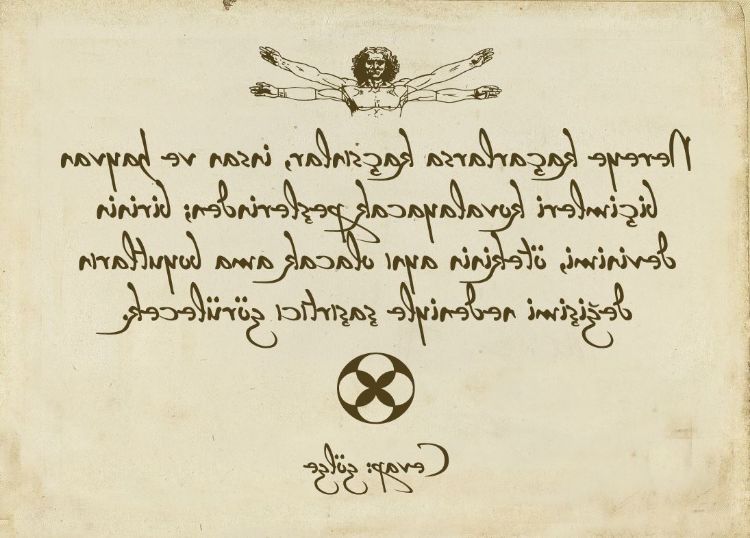 Nereye kaçarlarsa kaçsınlar, insan ve hayvan
biçimleri kovalayacak peşlerinden; birinin
devinimi, ötekinin aynı olacak ama boyutların
değişimi nedeniyle şaşırtıcı görülecek.
Cevap: gölge